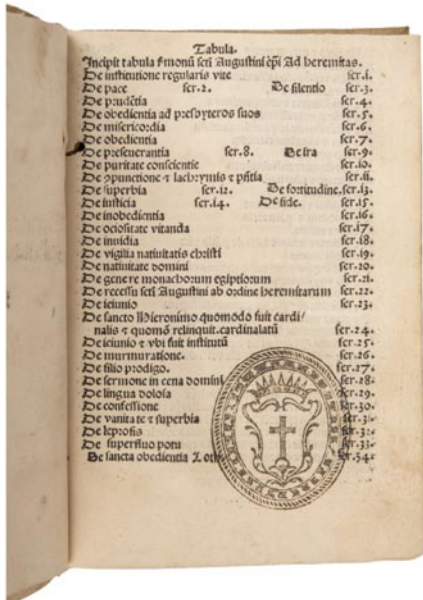 Tabula.
Incipit tabula ẜmonū scti Augustini ep̄i Ad heremitas.
De institutione regularis vite ser.1.
De pace ser.2. De silentio ser.3.
De prudētia ser.4.
De obedientia ad presbyteros suos ser.5.
De misericordia ser.6.
De obedientia ser.7.
De perseuerantia ser.8. De ira ser.9.
De puritate conscientie ser.10.
De ꝯpunctione ⁊ lachrymis ⁊ pn̄tia ser.11.
De superbia ser.12. De fortitudine. ser.13.
De iusticia ser.14. De fide. ser.15.
De inobedientia ser.16.
De ociositate vitanda ser.17.
De inuidia ser.18.
De vigilia natiuitatis christi ser.19.
De natiuitate domini ser.20.
De genere monachorum egiptiorum ser.21.
De recessu scti Augustini ab ordine heremitarum ser.22.
De ieiunio ser.23.
De sancto Hieronimo quomodo fuit cardi/
nalis ⁊ quomō relinquit.cardinalatū ser.24.
De ieiunio ⁊ vbi fuit institutū ser.25.
De murmuratione. ser.26.
De filio prodigo. ser.27.
De sermone in cena domini ser.28.
De lingua dolosa ser.29.
De confessione ser.30.
De vanitate ⁊ superbia ser.31.
De leprosis ser.32.
De superfluo potu ser.33.
De sancta obedientia ser.34.